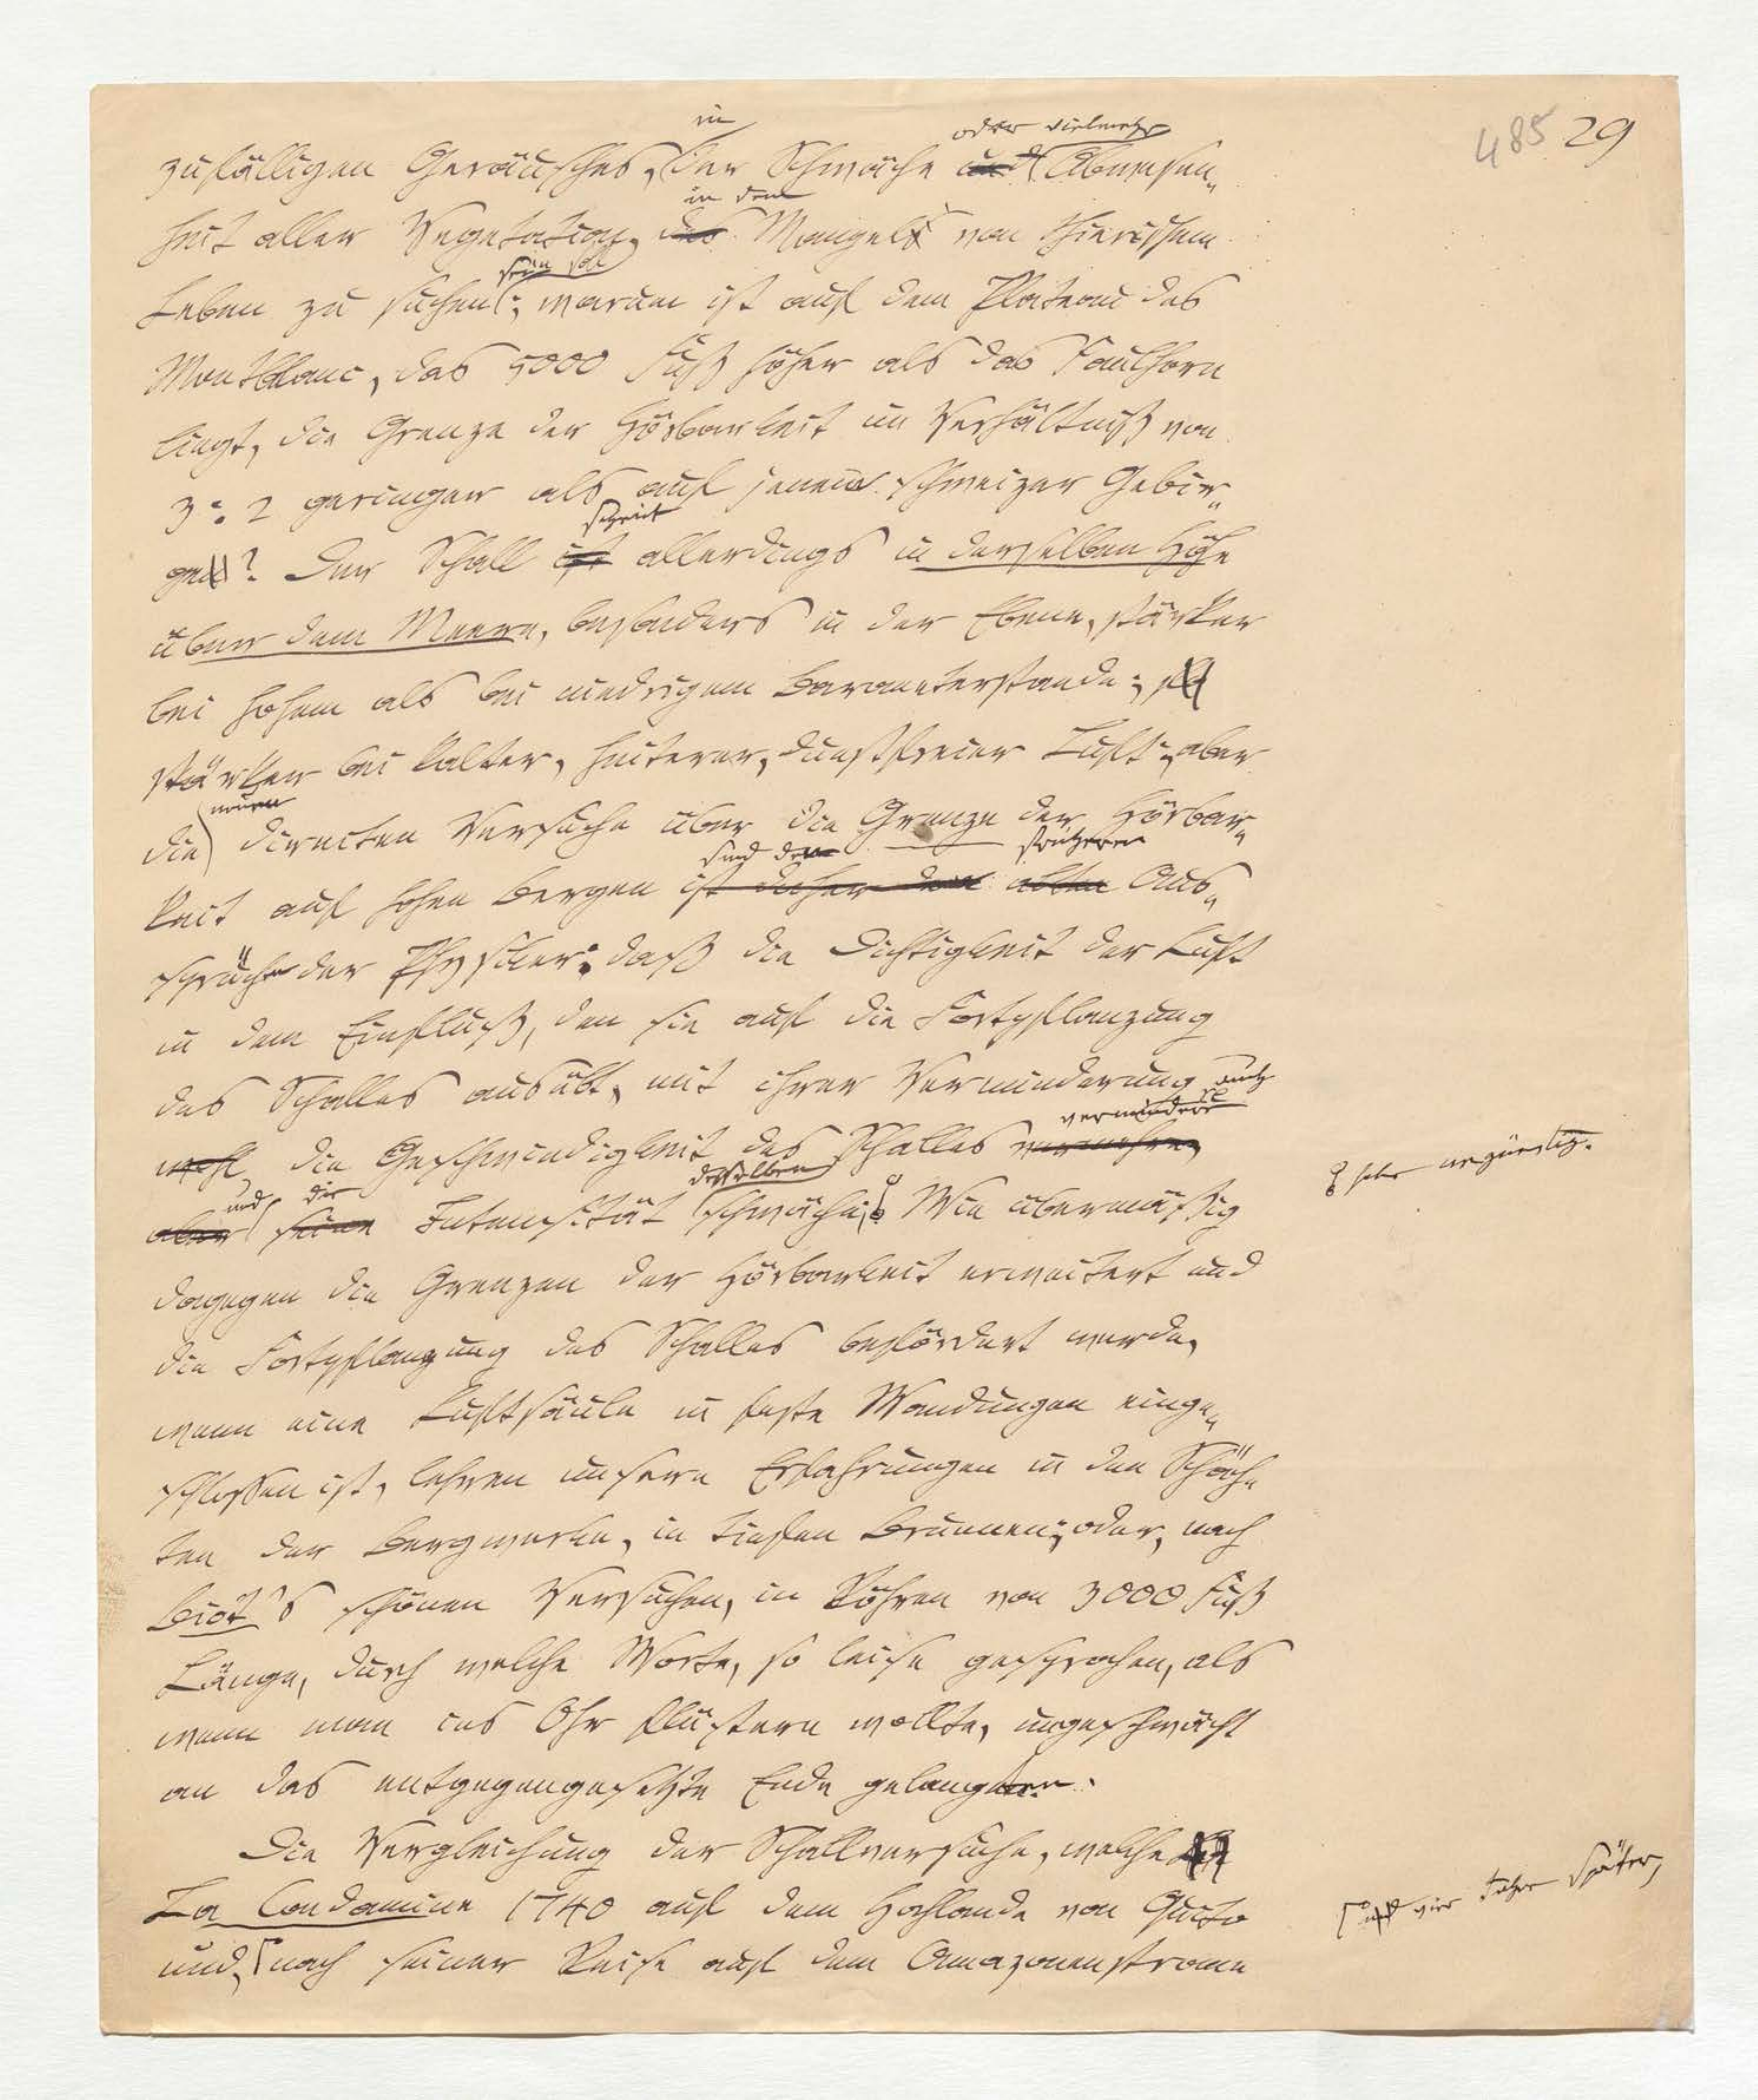 485 29
in oder vielmehr
zufälligen Geräusches, der Schwäche und Abwesen-
in dem
heit aller Vegetation, des Mangels von thierischem
sein soll
Leben zu suchen; warum ist auf dem Plateau des
Montblanc, das 5000 Fuß höher als das Faulhorn
liegt, die Grenze der Hörbarkeit im Verhältniß von
3:2 geringer als auf jenem schweizer Gebir-
scheint
ge? Der Schall ist allerdings in derselben Höhe
über dem Meere, besonders in der Ebene, stärker
bei hohem als bei niedrigem Barometerstande;
stärker bei kalter, heiterer, dunstfreier Luft; aber
neuen
die directen Versuche über die Grenze der Hörbar-
sind den früheren
keit auf hohen Bergen ist daher dem alten Aus-
sprüche der Physiker: daß die Dichtigkeit der Luft
in dem Einfluß, den sie auf die Fortpflanzung
des Schalles ausübt, mit ihrer Verminderung auch
vermindere
wohl die Geschwindigkeit des Schalles vermehre,
und die desselben
aber seine Intensität schwäche. Wie übermäßig
sehr ungünstig.
dagegen die Grenzen der Hörbarkeit erweitert und
die Fortpflanzung des Schalles befördert werde,
wenn eine Luftsäule in feste Wandungen einge-
schlossen ist, lehren unsere Erfahrungen in den Schäch-
ten der Bergwerke, in tiefen Brunnen; oder, nach
Biot's schönen Versuchen, in Röhren von 3000 Fuß
Länge, durch welche Worte, so leise gesprochen, als
wenn man ins Ohr flüstern wollte, ungeschwächt
an das entgegengesetzte Ende gelangten.
Die Vergleichung der Schallversuche, welche
La Condamine 1740 auf dem Hochlande von Quito
und, nach seiner Reise auf dem Amazonenstrome
vier Jahre später,